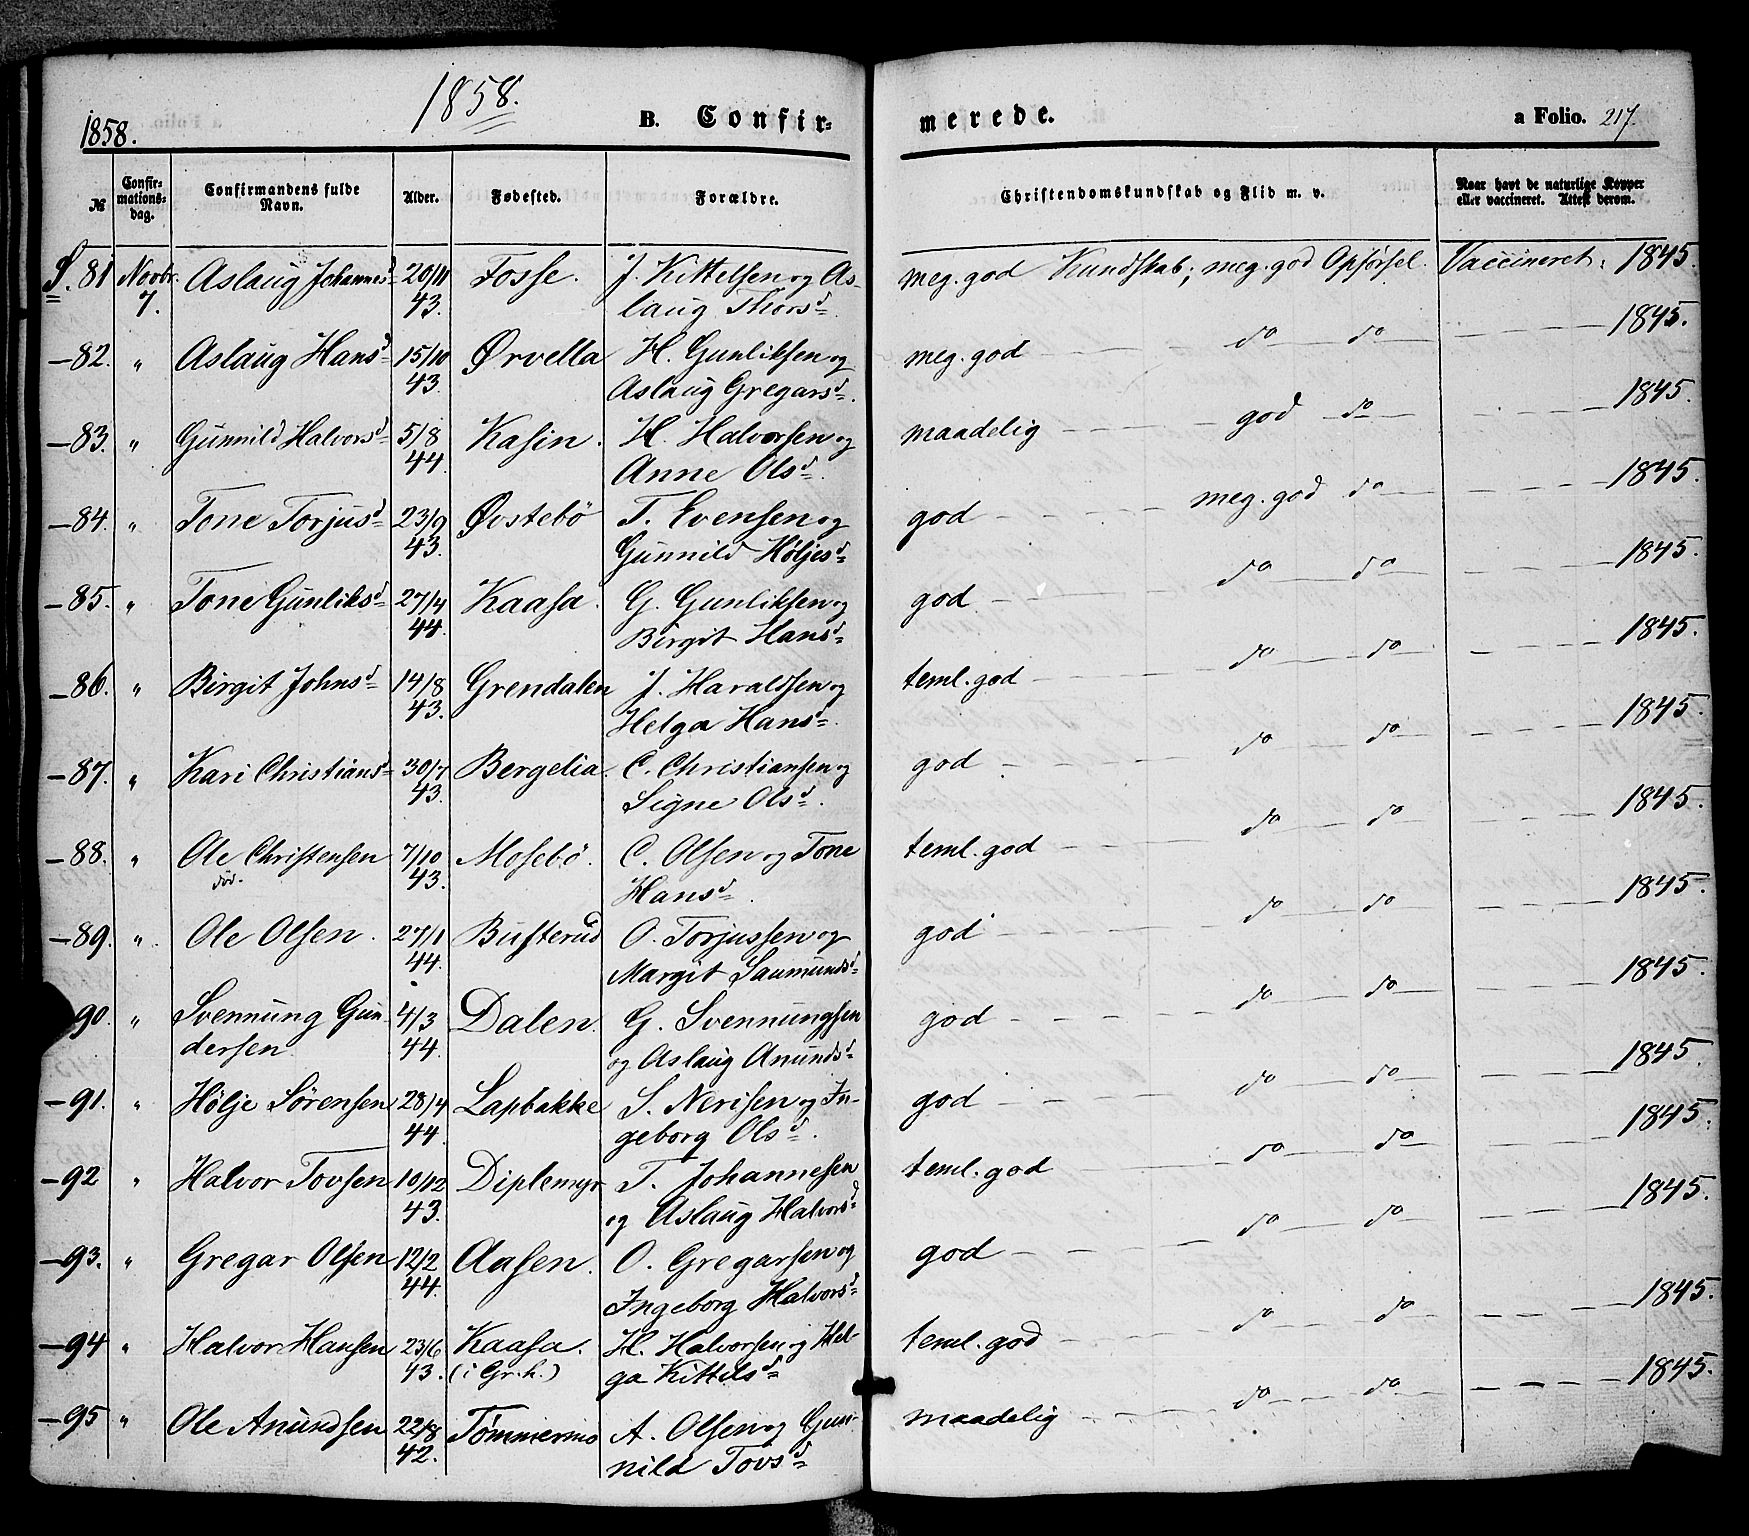 1858.
1858. B. Confir-
merede. a Folio. 217.
№ Confir-mations-dag. Confirmandens fulde Navn. Alder. Fødested. Forældre. Christendomskundskab og Flid m. v. Naar havt de naturlige Kopper eller vaccineret. Attest derom.
S. 81 Novbr. 7. Aslaug Johannesd 20/11 43. Fosse. J. Kittelsen og As-
laug Thorsd. meg. god Kundskab; meg. god Opførsel. Vaccineret. 1845.
— 82. " Aslaug Hansd 15/10 43. Ørvella H. Gunliksen og
Aslaug Gregarsd. meg. god — do — do — 1845.
— 83. " Gunnild Halvorsd 5/8 44. Kasin. H. Halvorsen og
Anne Olsd. maadelig — god — do — 1845.
— 84. " Tone Torjusd 23/9 43. Øvstebö T. Evensen og
Gunnild Höljesd god — meg. god do — 1845.
— 85. " Tone Gunliksd 27/4 44. Kaasa. G. Gunliksen og
Birgit Hansd god — do — do — 1845.
— 86. " Birgit Johnsd 14/8 43. Grendalen J. Haraldsen og
Helga Hansd. teml. god — do — do — 1845.
— 87. " Kari Christiansd 30/7 43. Bergelia. C. Christiansen og
Signe Olsd. god — do — do — 1845.
— 88. " Ole Christensen
död. 7/10 43. Mosebö. C. Olsen og Tone
Hansd. teml. god — do — do — 1845.
— 89. " Ole Olsen. 27/1 44. Busterud O. Torjussen og
Margit Saumundsd god — do — do — 1845.
— 90. " Svennung Gun-
dersen 4/3 44. Dalen. G. Svennungsen
og Aslaug Anundsd god — do — do — 1845.
— 91. " Hölje Sörensen 28/4 44. Lapbakke S. Nerisen og In-
geborg Olsd. god — do — do — 1845.
— 92 " Halvor Tovsen 10/12 43. Diplemyr T. Johannesen
og Aslaug Halvorsd teml. god — do — do — 1845.
— 93. " Gregar Olsen 12/2 44. Aasen. O. Gregarsen og
Ingeborg Halvorsd god — do — do — 1845.
— 94 " Halvor Hansen 23/6 43. Kaasa.
(i Gr. h.) H. Halvorsen og Hel-
ga Kittelsd teml. god — do — do — 1845.
— 95 " Ole Anundsen 22/8 42. Tømmermo A. Olsen og Gun-
nild Tovsd maadelig — do — do — 1845.